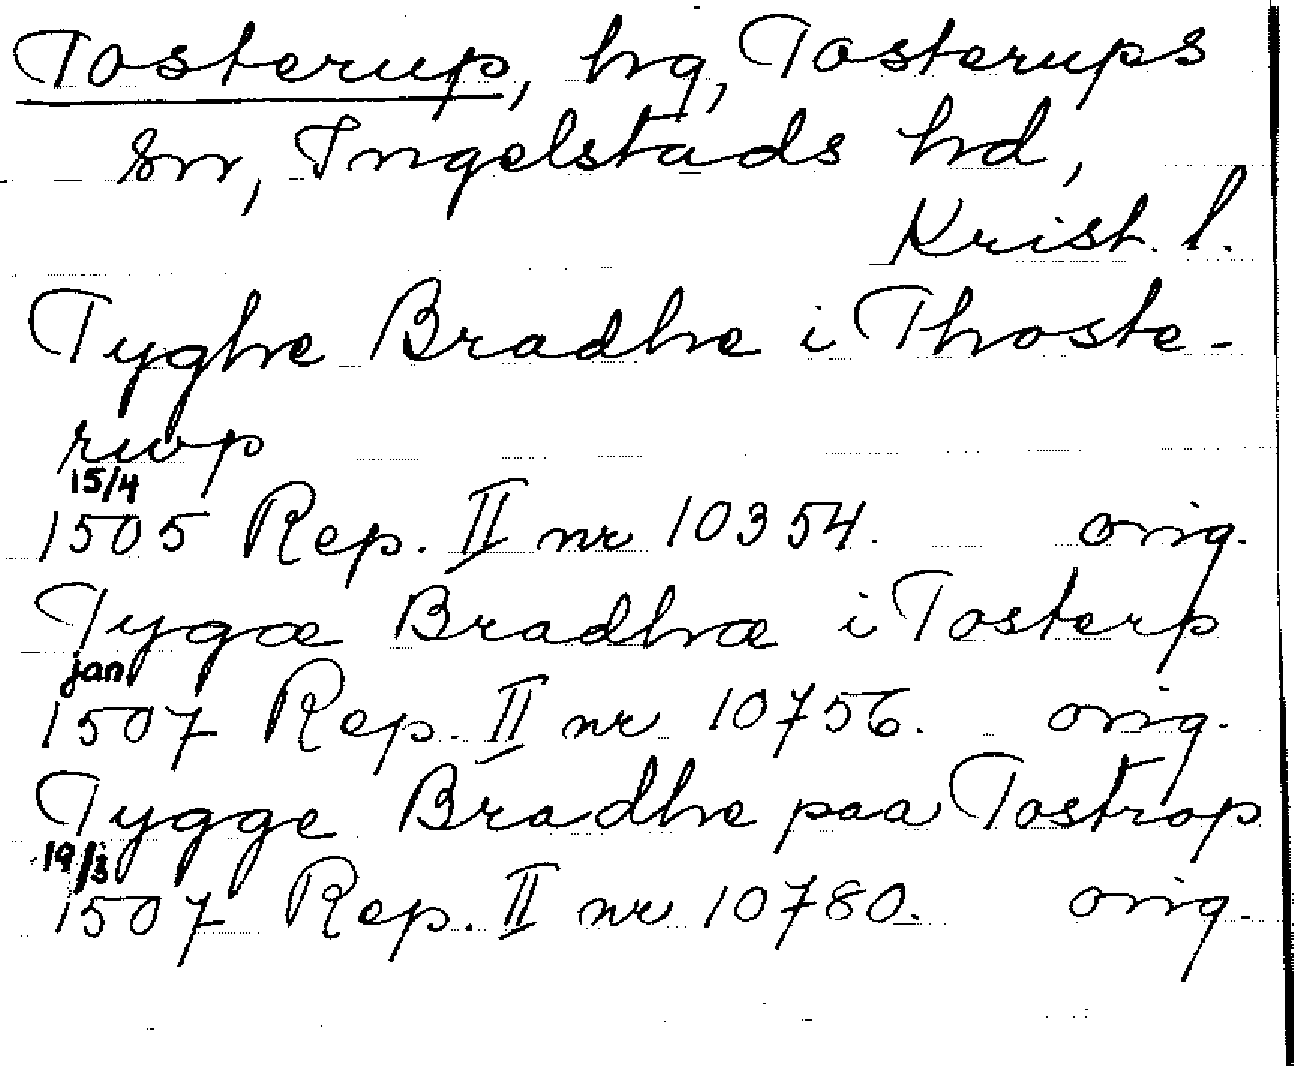 Tosterup, hg, Tosterups
sn, Ingelstads hd,
Krist. l.
Tyghe Bradhe i Thoste-
rwp
15/4
1505 Rep. II nr 10354. orig.
Tygæ Bradhæ i Tosterp
jan
1507 Rep. II nr 10756. orig.
Tygge Bradhe paa Tostrop
19/3
1507 Rep. II nr 10780. orig.